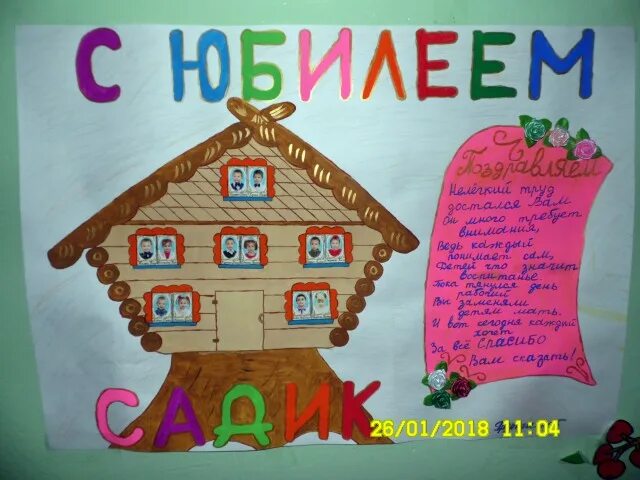 С ЮБИЛЕЕМ
Поздравляем
Нелёгкий труд
достался Вам
Он много требует
внимания,
Ведь каждый
понимает сам,
Детей что значит
воспитанье.
Пока тянулся день
рабочий
Вы заменяли
детям мать.
И вот сегодня каждый
хочет
За всё СПАСИБО
Вам сказать!
САДИК
26/01/2018 11:04